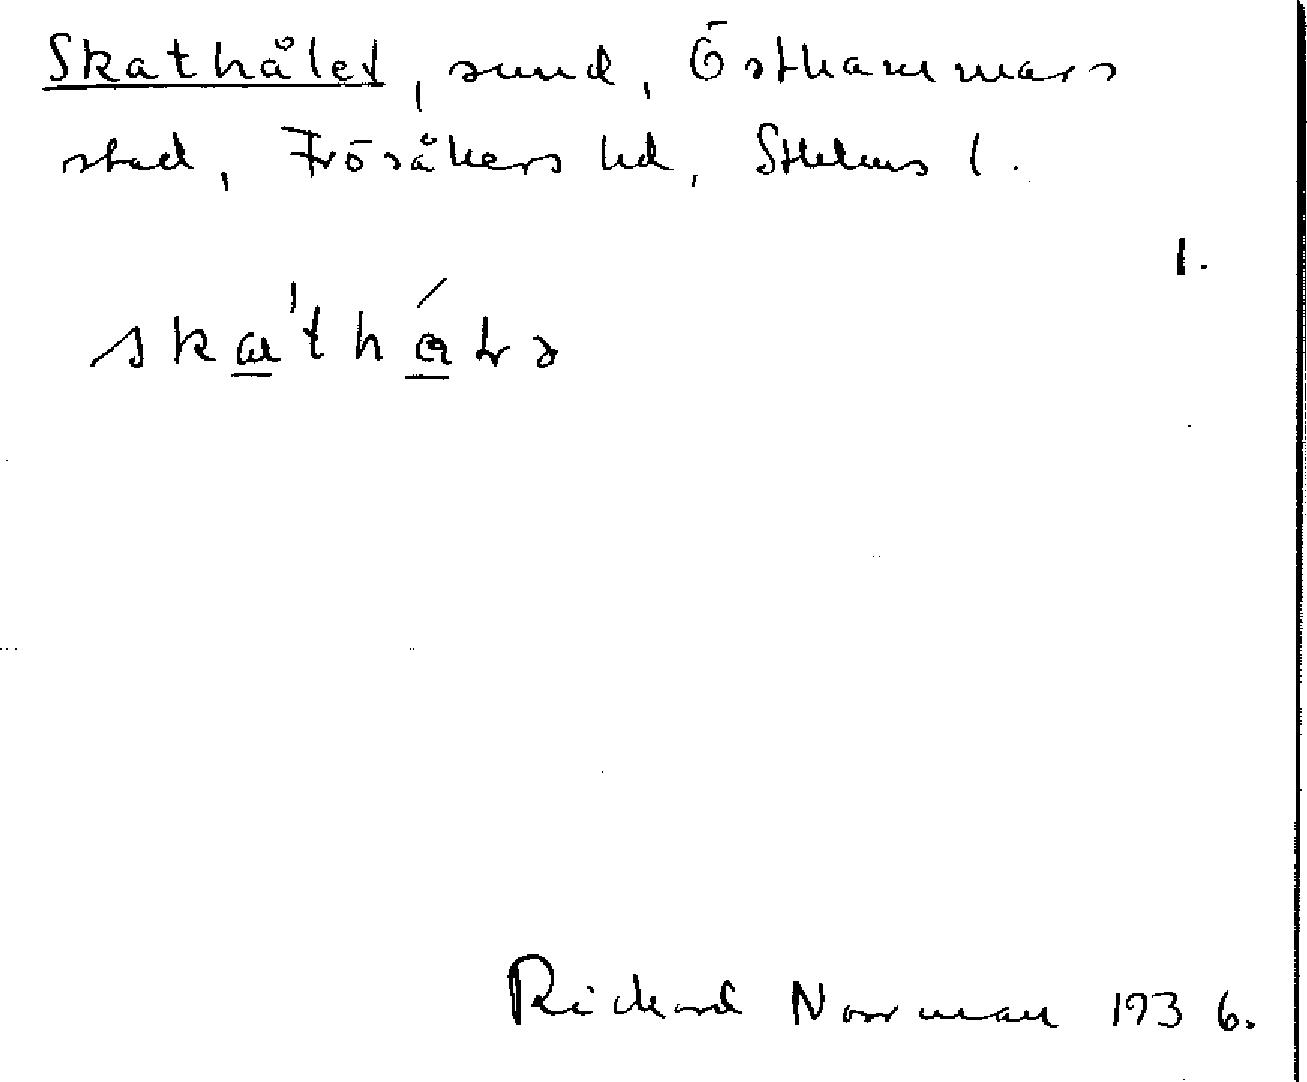 Skathålet, sund, Östhammars
stad, Frösåkers hd, Sthlms l.
1.
Richard Norrman 1936.